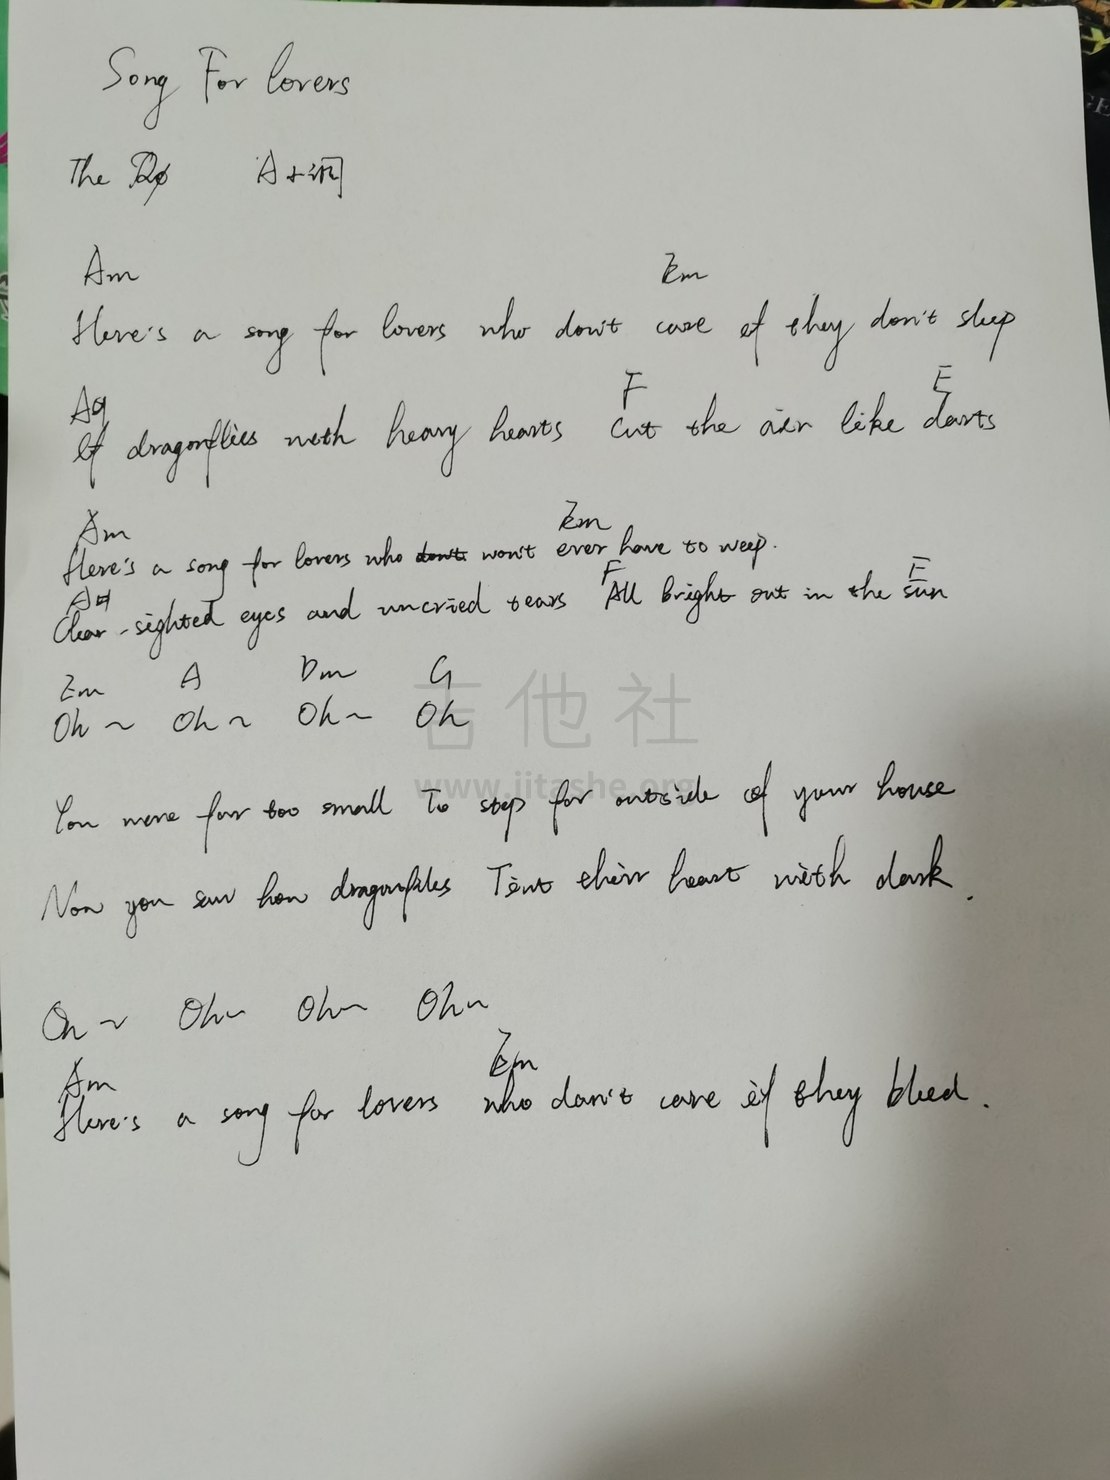 Song For lovers
The A小调
Am Em
Here's a song for lovers who don't care if they don't sleep
F E
If dragonflies with heavy hearts Cut the air like darts
Am Em
Here's a song for lovers who won't ever have to weep.
F E
Clear-sighted eyes and uncried tears All bright out in the sun
Em A Dm G
Oh~ Oh~ Oh~ Oh
吉他社
www.jitashe.org
You were far too small To step far outside of your house
Now you saw how dragonflies Tint their heart with dark.
Oh~ Oh~ Oh~ Oh~
Am Em
Here's a song for lovers who don't care if they bleed.